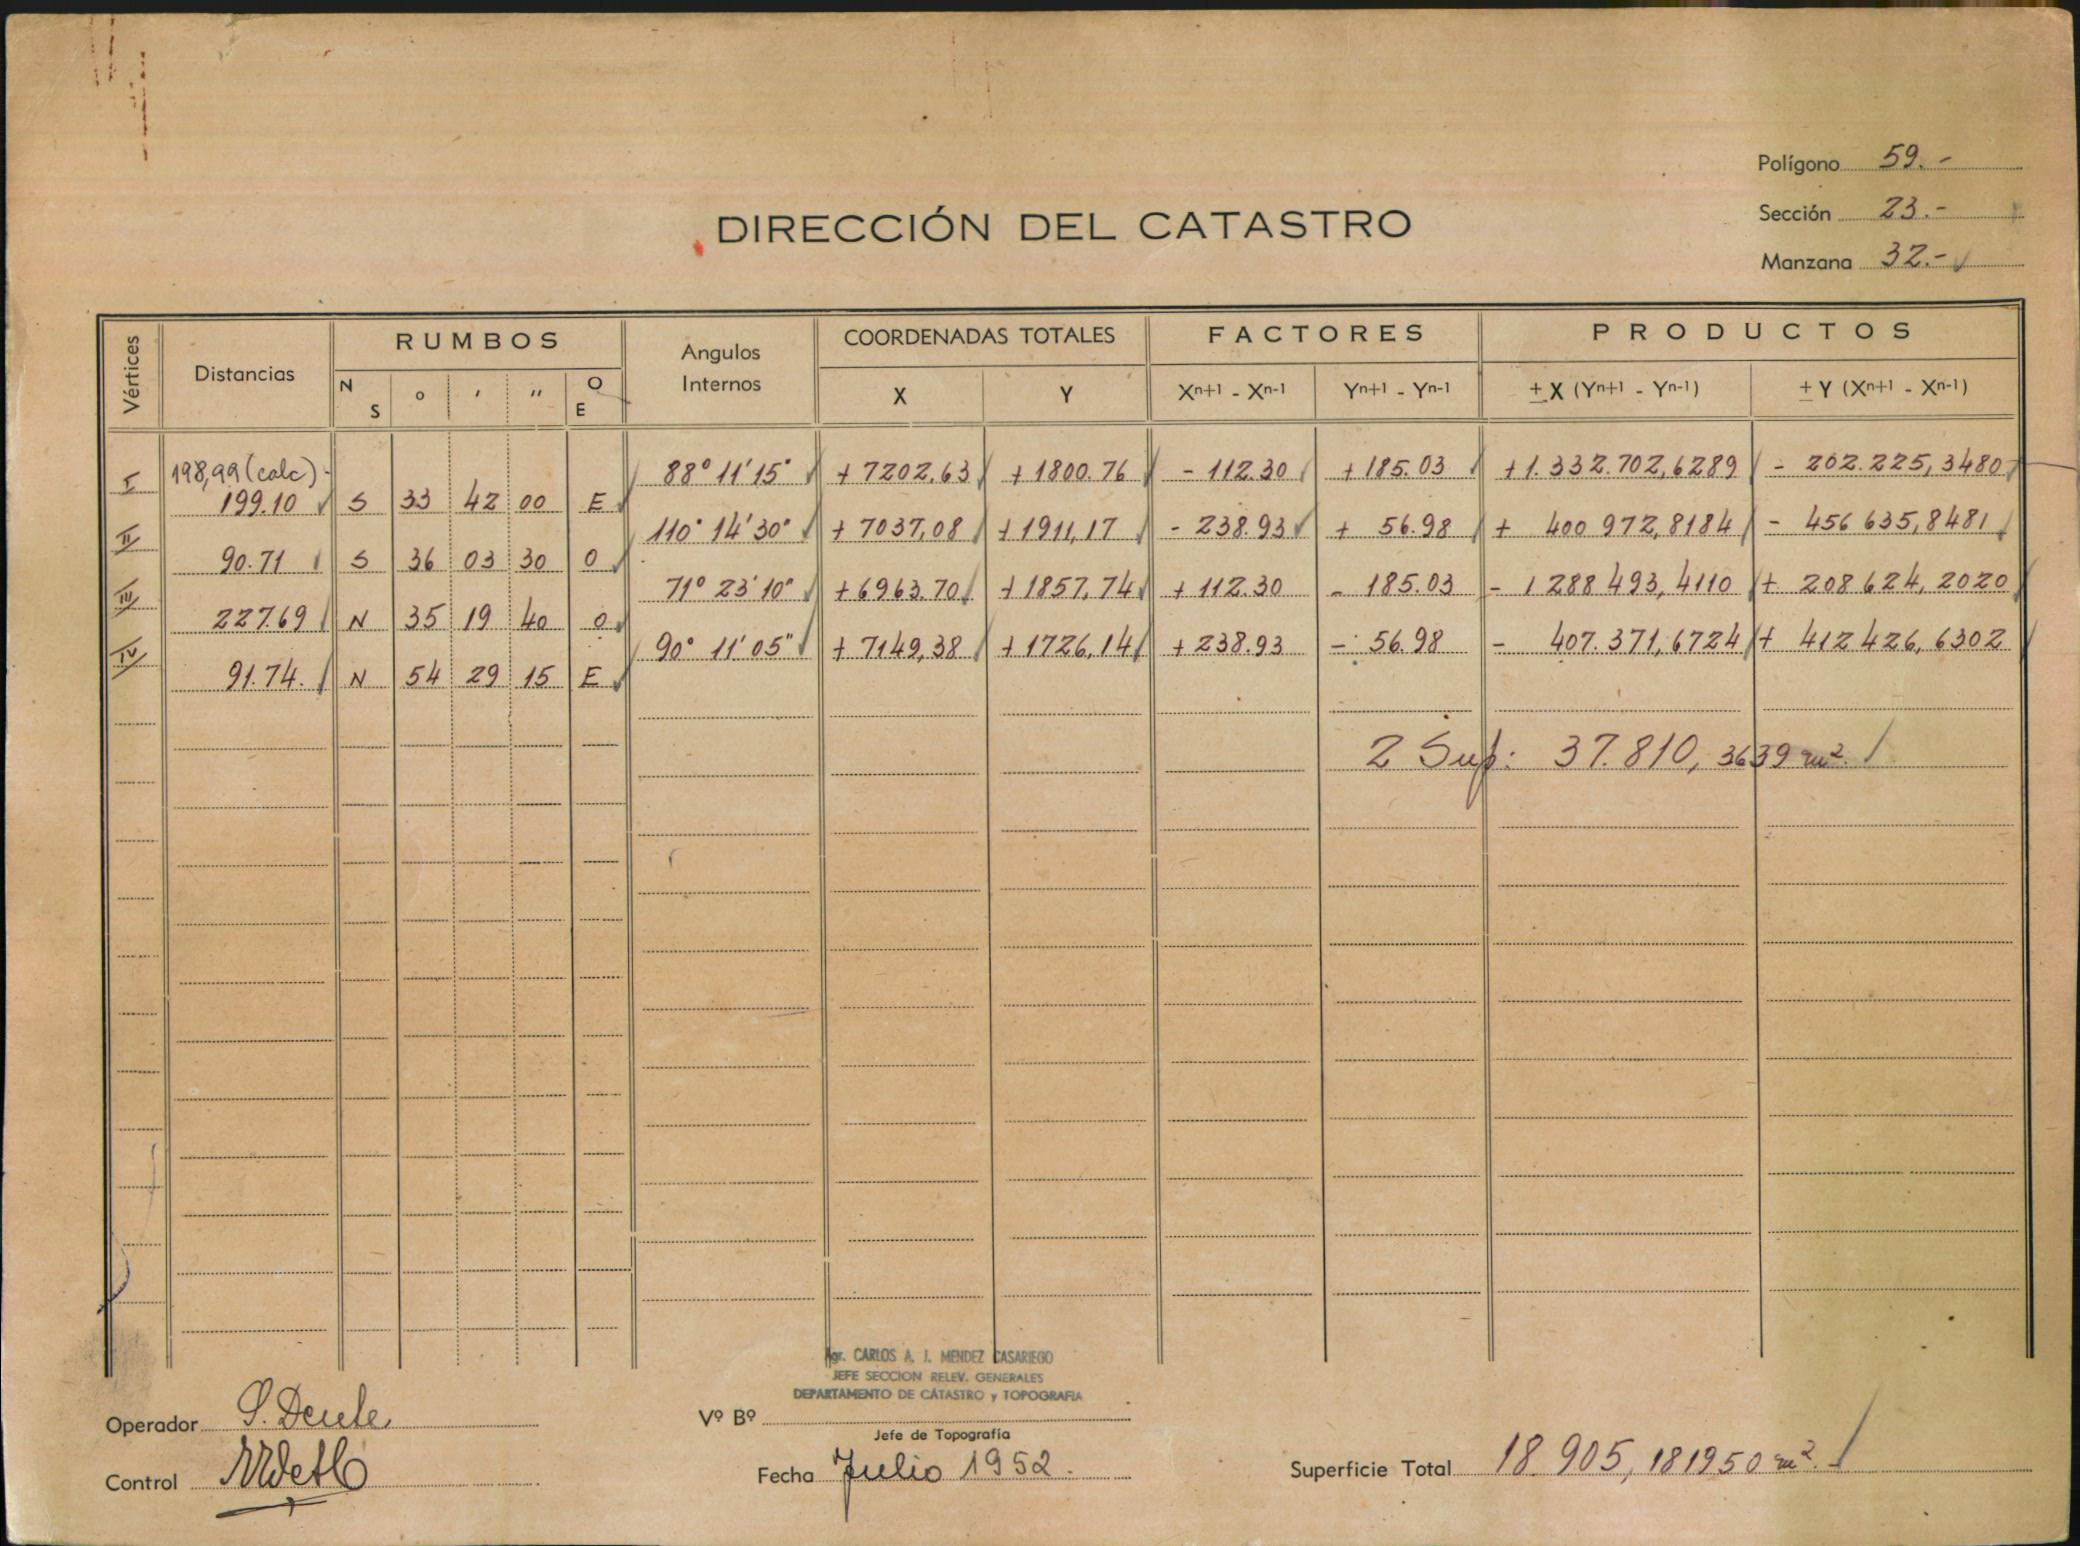 Polígono 59.-
Sección 23.-
DIRECCIÓN DEL CATASTRO
Manzana 32.-
Vértices Distancias RUMBOS Angulos Internos COORDENADAS TOTALES FACTORES PRODUCTOS
N S ° ' " O E X Y Xn+1 - Xn-1 Yn+1 - Yn-1 ± X (Yn+1 - Yn-1) ± Y (Xn+1 - Xn-1)
198,99 (calc)-
I 88° 11' 15" + 7202,63 + 1800.76 - 112.30 + 185.03 + 1.332.702,6289 - 202.225,3480
199.10 S 33 42 00 E
II 110° 14' 30" + 7037,08 + 1911,17 - 238.93 + 56.98 + 400 972,8184 - 456 635,8481
90.71 S 36 03 30 O
III 71° 23' 10" + 6963.70 + 1857,74 + 112.30 - 185.03 - 1 288 493,4110 + 208 624,2020
227.69 N 35 19 40 O
IV 90° 11' 05" + 7149,38 + 1726,14 + 238.93 - 56.98 - 407.371,6724 + 412 426,6302
91.74. N 54 29 15 E
2 Sup: 37.810,3639 m².
Agr. CARLOS A. J. MENDEZ CASARIEGO
JEFE SECCION RELEV. GENERALES
DEPARTAMENTO DE CATASTRO y TOPOGRAFIA
Operador
Vº Bº
Jefe de Topografía
Control
Fecha Julio 1952.
Superficie Total 18.905,181950 m².